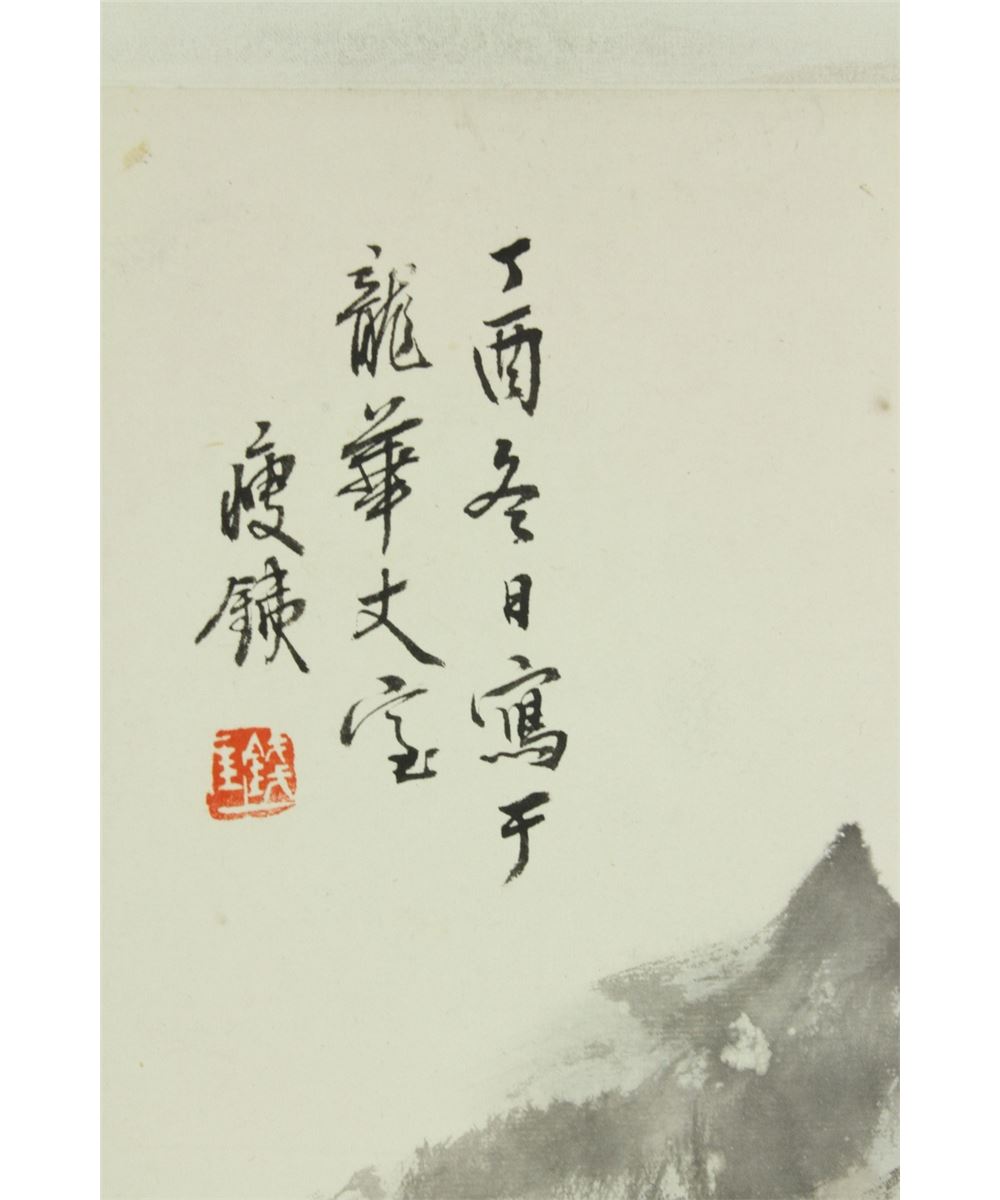 丁酉冬日寫于
龍華丈室
瘦銕
錢